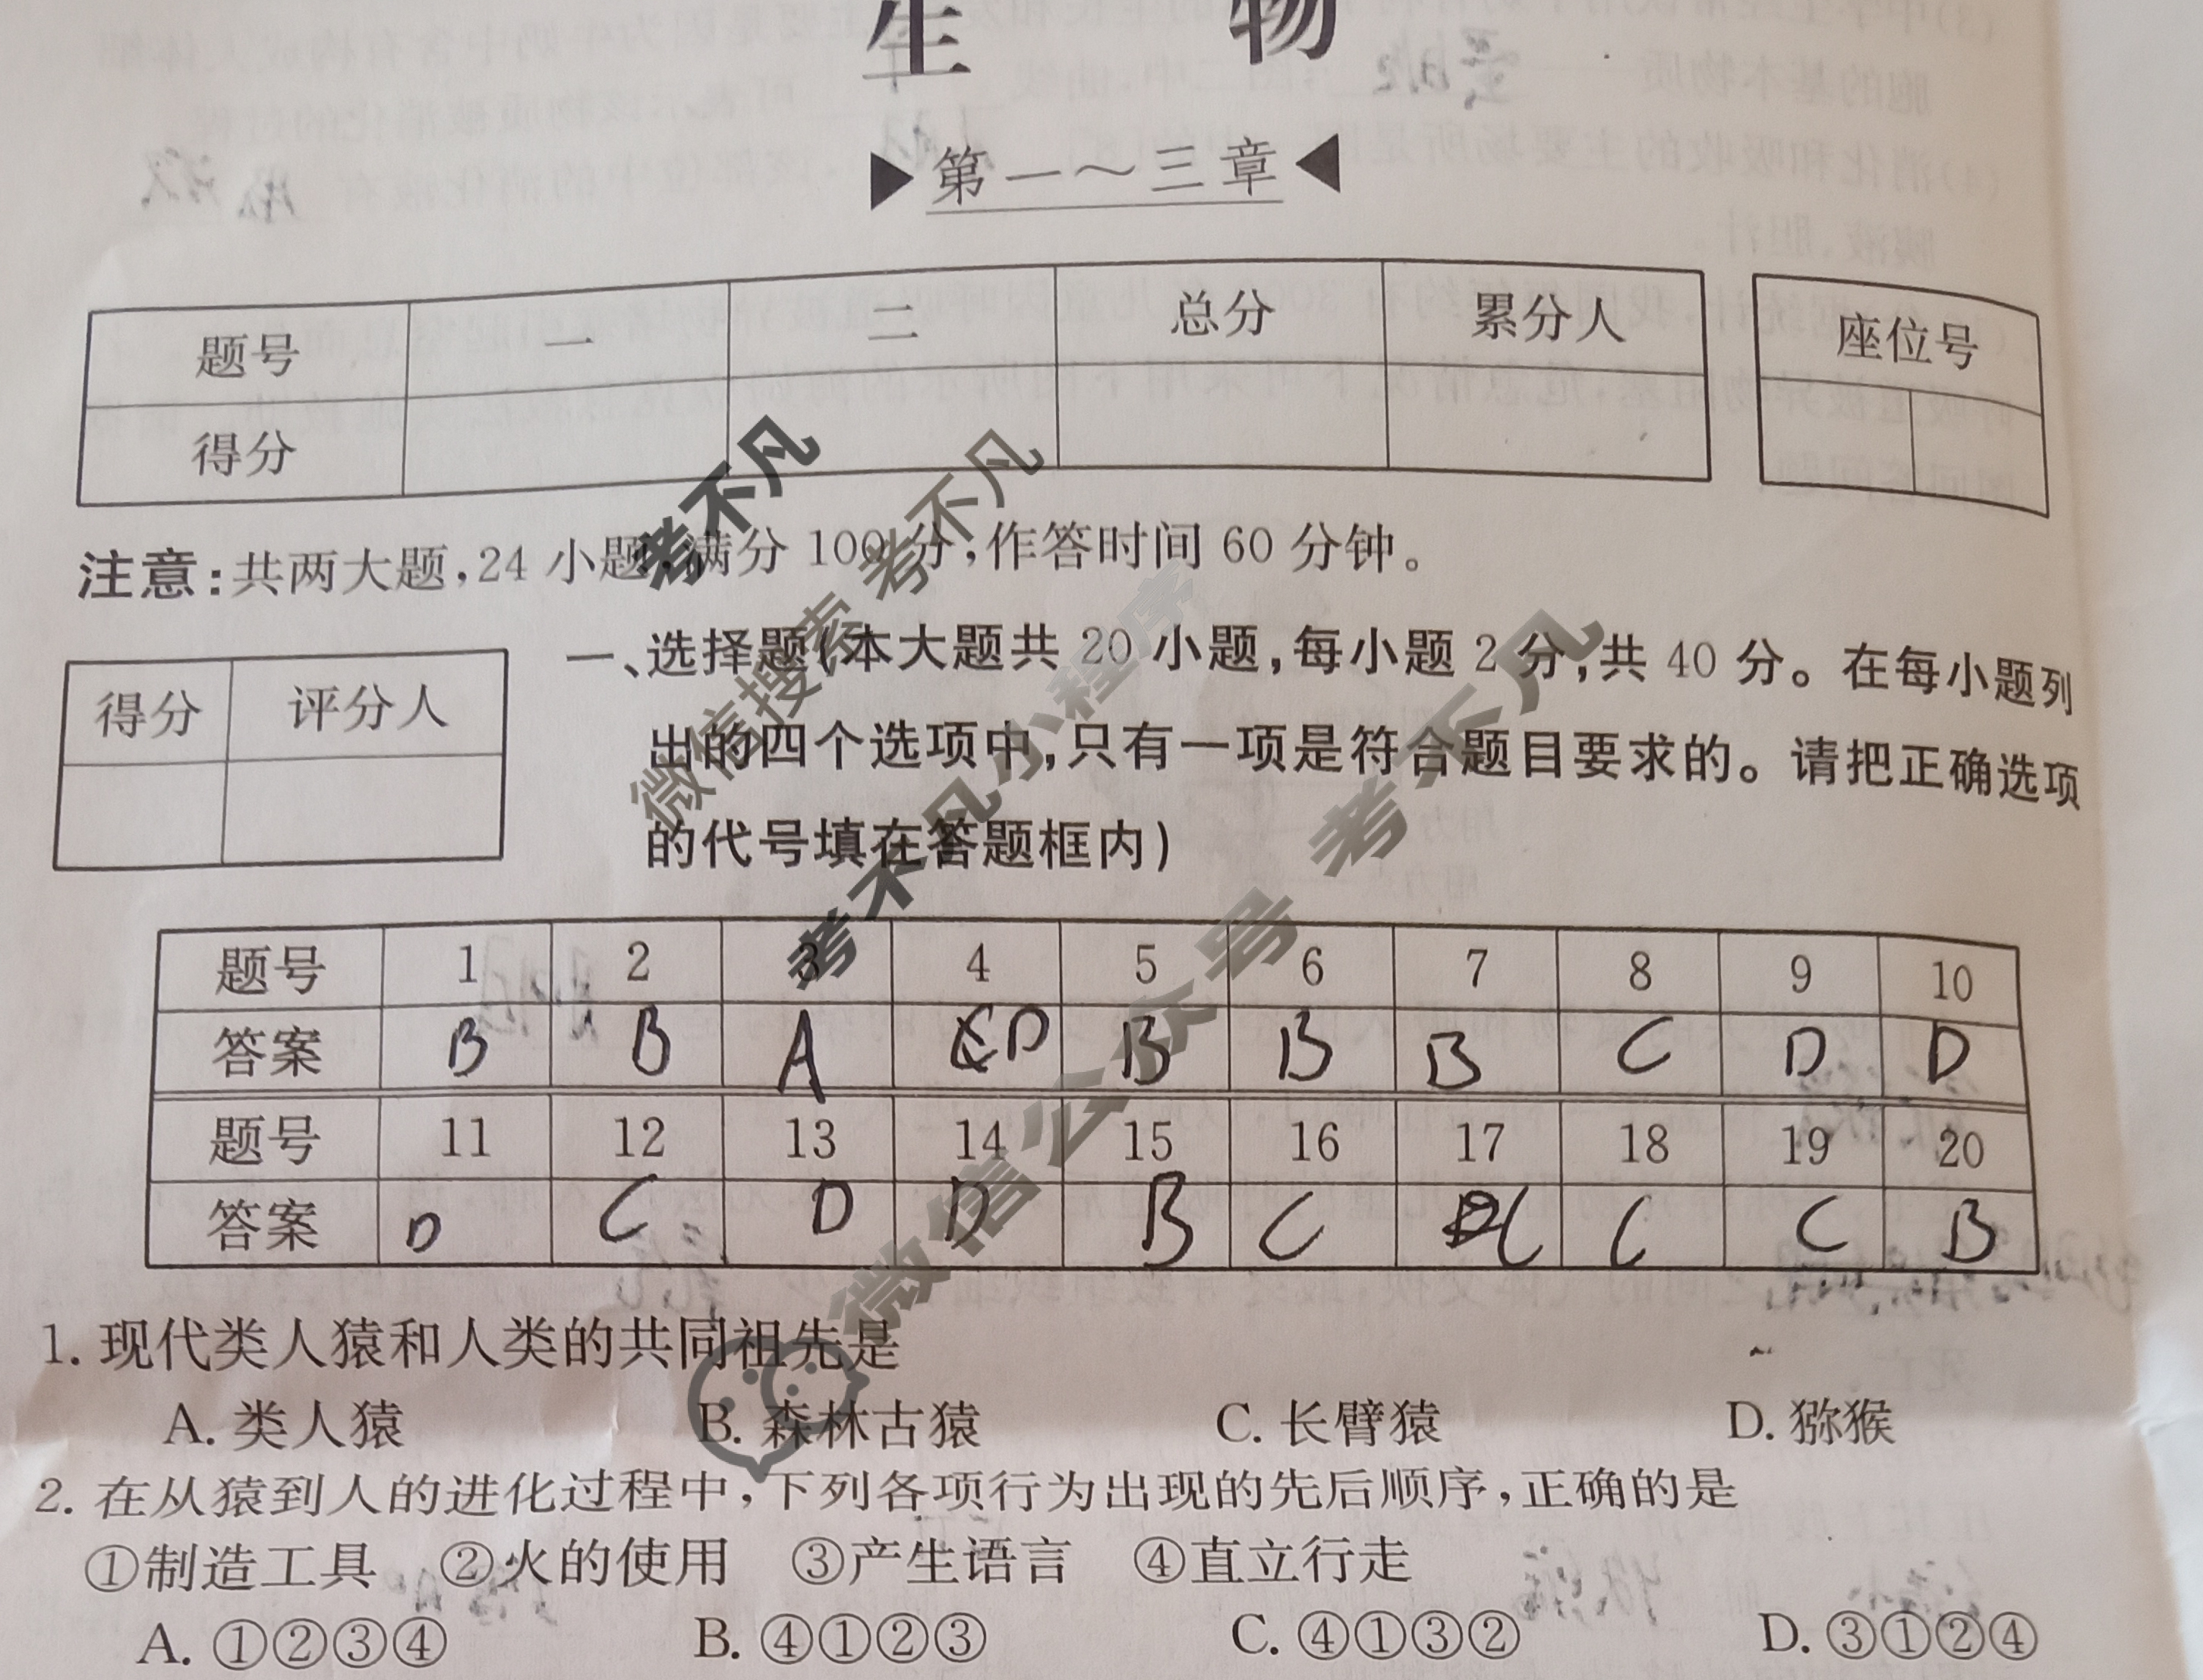 生 物
第一～三章
题号 一 二 总分 累分人
得分
座位号
注意:共两大题,24 小题,满分 100 分,作答时间 60 分钟。
得分 评分人
一、选择题(本大题共 20 小题,每小题 2 分,共 40 分。在每小题列
出的四个选项中,只有一项是符合题目要求的。请把正确选项
的代号填在答题框内)
题号 1 2 3 4 5 6 7 8 9 10
答案 B B A D B B B C D D
题号 11 12 13 14 15 16 17 18 19 20
答案 D C D D B C C C C B
1. 现代类人猿和人类的共同祖先是
A. 类人猿 B. 森林古猿 C. 长臂猿 D. 猕猴
2. 在从猿到人的进化过程中,下列各项行为出现的先后顺序,正确的是
①制造工具 ②火的使用 ③产生语言 ④直立行走
A. ①②③④ B. ④①②③ C. ④①③② D. ③①②④
考不凡
微信搜索 考不凡
考不凡小程序
微信公众号 考不凡